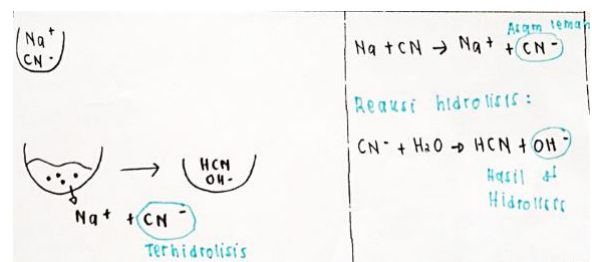 Na⁺
CN⁻
HCN
OH⁻
Na⁺ + CN⁻
Terhidrolisis
Asam lemah
Na + CN → Na⁺ + CN⁻
Reaksi hidrolisis :
CN⁻ + H₂O → HCN + OH⁻
Hasil di
Hidrolisis